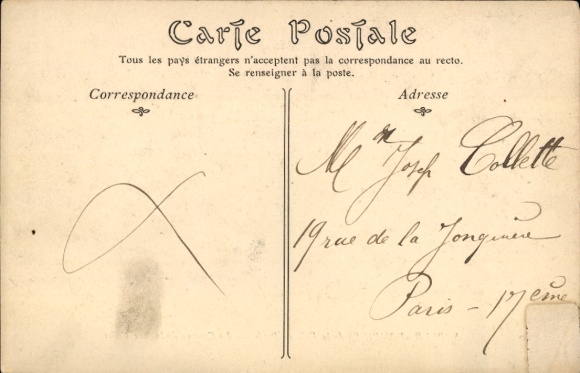 Carte Postale
Tous les pays étrangers n'acceptent pas la correspondance au recto.
Se renseigner à la poste.
Correspondance
Adresse
Mr Josep Collette
19 rue de la Jonquière
Paris - 17ème